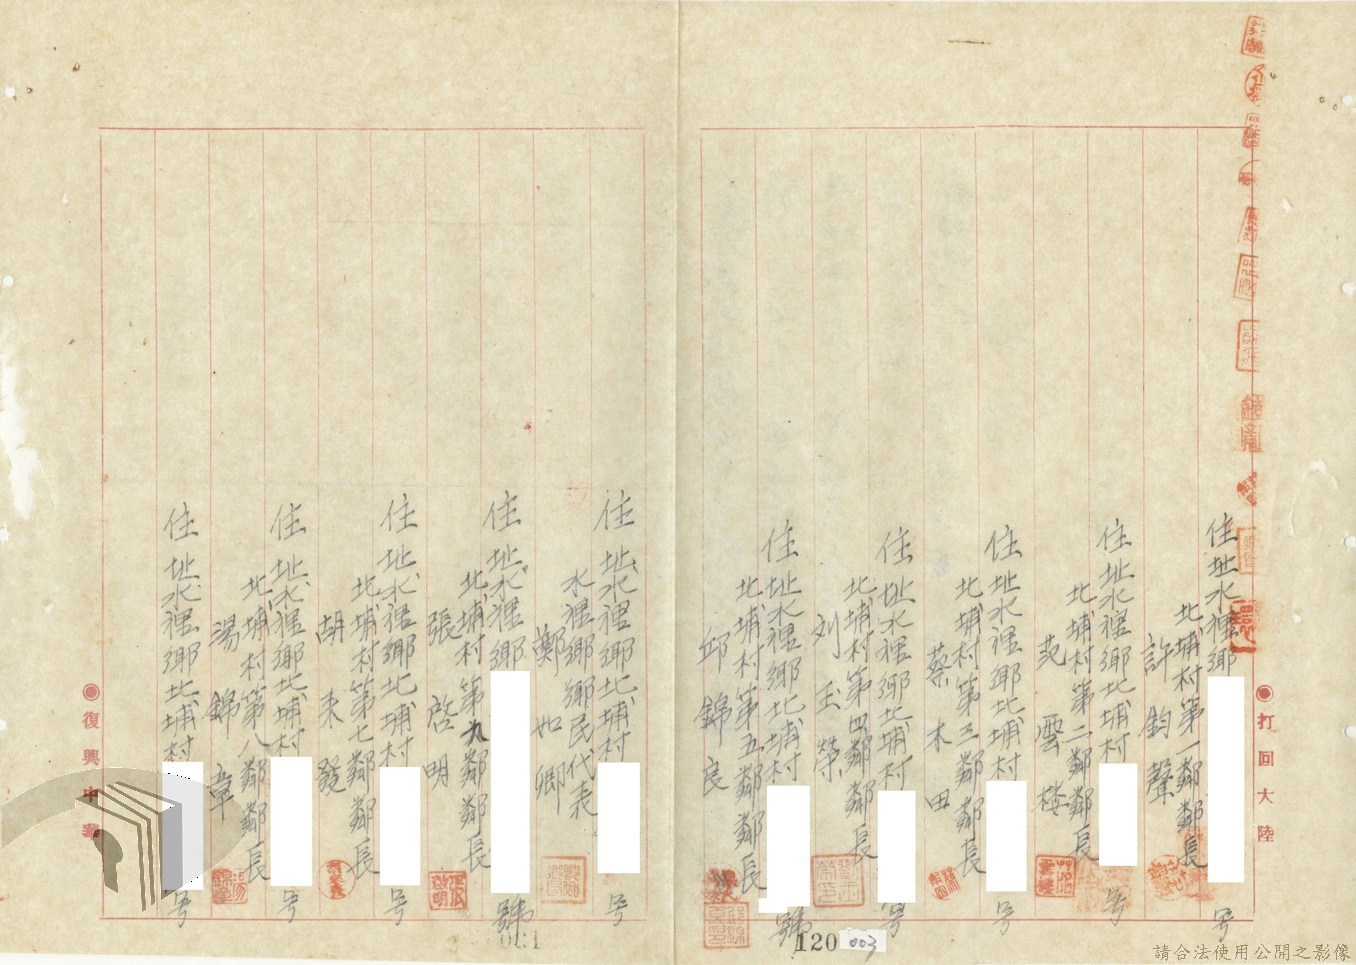 住址水裡鄉 号
北埔村第一鄰鄰長
許鈞聲
住址水裡鄉北埔村 号
北埔村第二鄰鄰長
范雲樓
住址水裡鄉北埔村 号
北埔村第三鄰鄰長
蔡木田
住址水裡鄉北埔村 号
北埔村第四鄰鄰長
刘玉榮
住址水裡鄉北埔村 號
北埔村第五鄰鄰長
邱錦良
住址水裡鄉北埔村 号
水裡鄉鄉民代表
鄭如卿
住址水裡鄉 號
北埔村第九鄰鄰長
張啓明
住址水裡鄉北埔村 号
北埔村第七鄰鄰長
胡來發
住址水裡鄉北埔村 号
北埔村第八鄰鄰長
湯錦章
住址水裡鄉北埔村 号
打回大陸
復興中華
120
003
請合法使用公開之影像